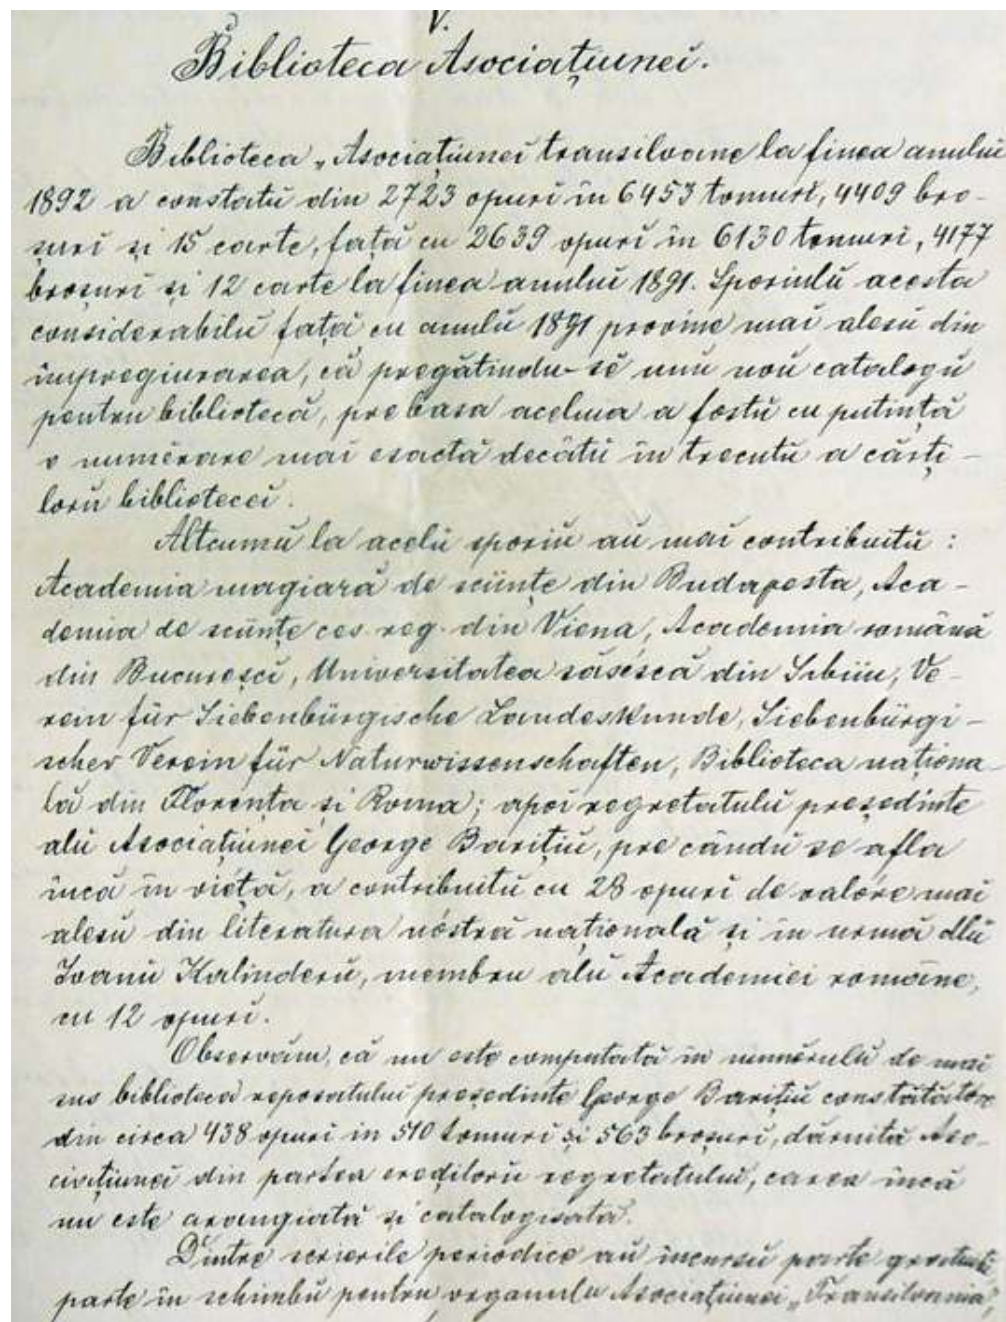 V.
Biblioteca Asociațiunei.
Biblioteca „Asociațiunei transilvane la finea anului
1892 a constatŭ din 2723 opuri în 6453 tomuri, 4409 bro-
șuri și 15 carte, față cu 2639 opuri în 6130 tomuri, 4177
broșuri și 12 carte la finea anului 1891. Sporiulŭ acesta
considerabilŭ față cu anulŭ 1891 provine mai alesŭ din
împregiurarea, că pregătindu-sĕ unu nou catalogŭ
pentru bibliotecă, pre basa aceluia a fostŭ cu putință
o numĕrare mai esactă decâtŭ în trecutŭ a cărți-
lorŭ bibliotecei.
Altcumŭ la acelŭ sporiu au mai contribuitŭ:
Academia magiară de sciințe din Budapesta, Aca-
demia de sciințe ces. reg. din Viena, Academia română
din Bucuresci, Universitatea săsĕscă din Sibiiu, Ve-
rein für Siebenbürgische Landeskunde, Siebenbürgi-
scher Verein für Naturwissenschaften, Biblioteca naționa-
lă din Florența și Roma; apoi regretatulŭ președinte
alŭ Asociațiunei George Barițiu, pre cândŭ se afla
încă în viéță, a contribuitŭ cu 28 opuri de valóre mai
alesŭ din literatura nóstră națională și în urmă dlŭ
Ioanŭ Kalinderŭ, membru alŭ Academiei române,
cu 12 opuri.
Observăm, că nu este computată în numĕrulŭ de mai
sus biblioteca reposatului președinte George Barițiu constătătóre
din circa 438 opuri in 510 tomuri și 563 broșuri, dăruită Aso-
ciațiunei din partea erediloru regretatului, carea încă
nu este arangiată și catalogisată.
Dintre scrierile periodice au incursŭ parte gratuit
parte în schimbŭ pentru organulŭ Asociațiunei „Transilvania”,